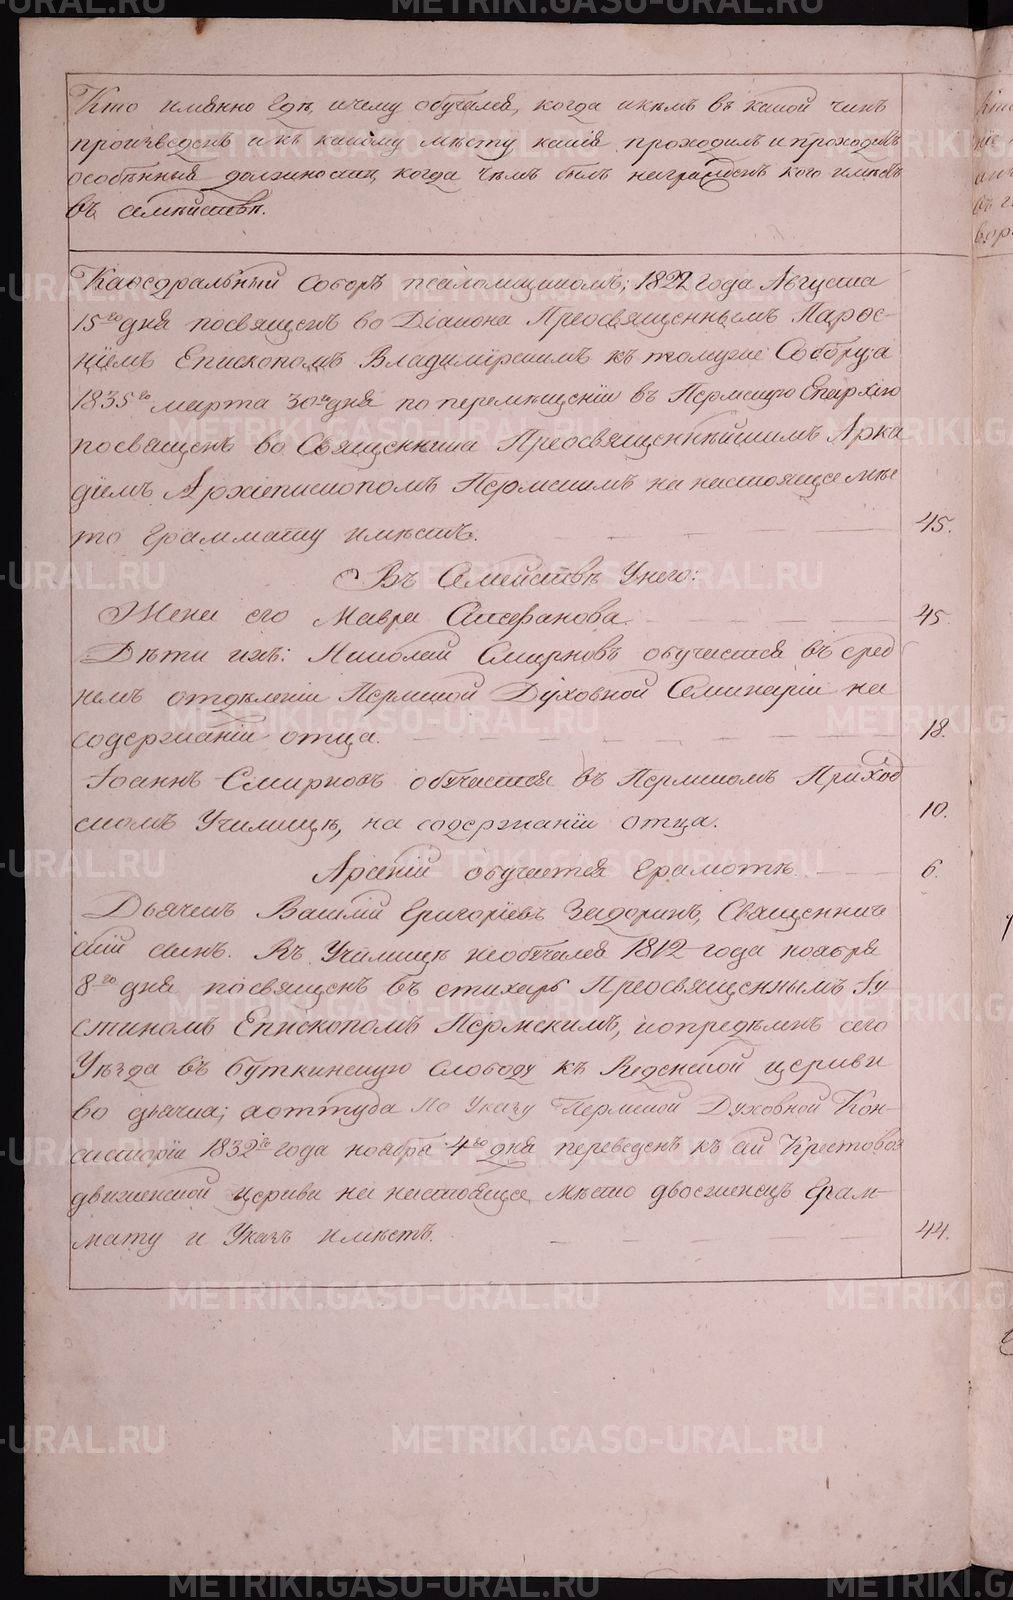 Кто имянно где, и чему обучался, когда и кемъ въ какой чинъ
произведенъ и къ какому мѣсту какія проходилъ и проходитъ
особѣнныя должности, когда чѣмъ былъ награжденъ кого имѣетъ
въ семѣйствѣ.
Каѳедральный Соборъ псаломщикомъ; 1822 года Августа
15го дня посвященъ во Діакона Преосвященнымъ Парѳе-
ніемъ Епископомъ Владимірскимъ къ томуже Собору; а
1835го марта 30го дня по перемѣщеніи въ Пермскую Епархію
посвященъ во Священника Преосвященнѣйшимъ Арка
діемъ Архіепископомъ Пермскимъ на настоящее мѣс
то Граммату имѣетъ. 45.
Въ Семействѣ Унего:
Жена его Мавра Стефанова. 45.
Дѣти ихъ: Николай Смирновъ обучается въ сред
немъ отдѣленіи Пермской Духовной Семинаріи на
содержаніи отца. 18.
Іоаннъ Смирновъ обучается въ Пермскомъ Приход
скомъ Училищѣ, на содержаніи отца. 10.
Арсеній обучается Грамотѣ. 6.
Дьячекъ Василій Григоріевъ Задоринъ, Священниче
скій сынъ. Въ Училищѣ необучался 1812 года ноября
8го дня посвященъ въ стихарь Преосвященнымъ Іу-
стиномъ Епископомъ Пермскимъ, иопредѣленъ сего
Уѣзда въ Буткинскую слободу къ Веденской церкви
во дьячка; аоттуда По Указу Пермской Духовной Кон-
систоріи 1832го года ноября 4го дня переведенъ къ сей Крестовоз
движенской церкви на настоящее мѣсто двоеженецъ Грам-
мату и Указъ имѣетъ. 44.